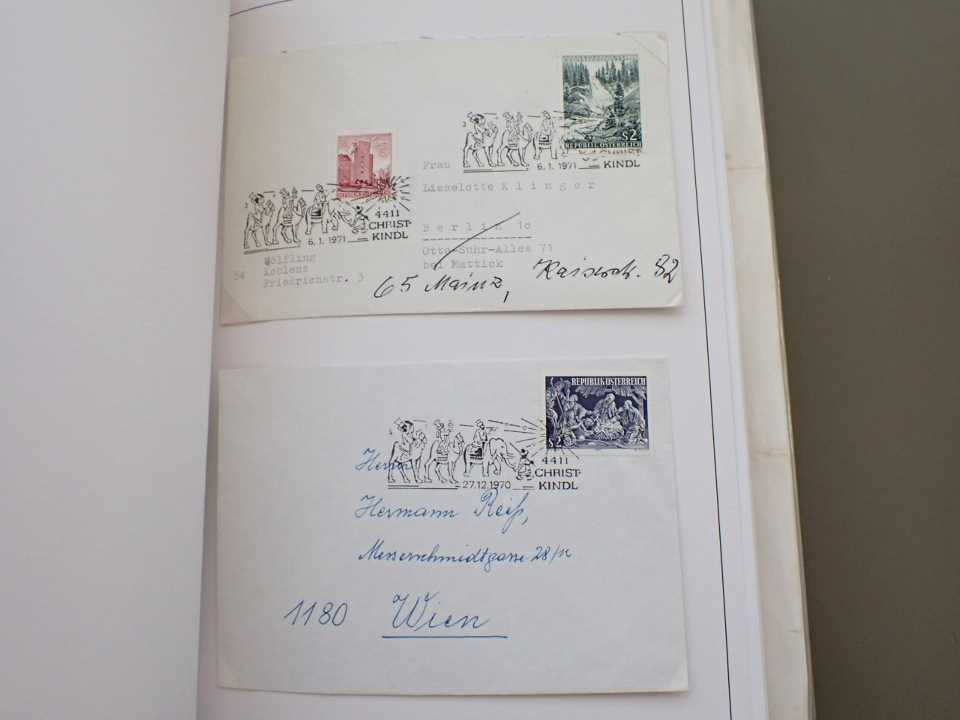 REPUBLIK ÖSTERREICH
S2
6.1.1971
KINDL
Frau
Lieselotte Klinger
Berlin 1c
Otto-Suhr-Allee 71
bei Mattick
65 Mainz,
4411
CHRIST-
KINDL
6.1.1971
Wölfling
54 Koblenz
Friedrichstr. 3
REPUBLIK ÖSTERREICH
4411
CHRIST-
KINDL
27.12.1970
Herrn
Hermann Reiß,
Messerschmidtgasse 28/
1180 Wien